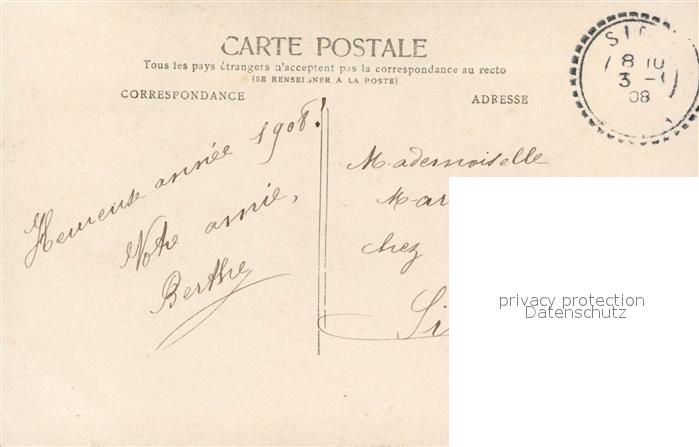 CARTE POSTALE
Tous les pays étrangers n'acceptent pas la correspondance au recto
(SE RENSEIGNER A LA POSTE)
CORRESPONDANCE
ADRESSE
8 10
3 - 1
08
Heureuse année 1908!
Votre amie,
Berthe
Mademoiselle
Mar
chez
Si
privacy protection
Datenschutz